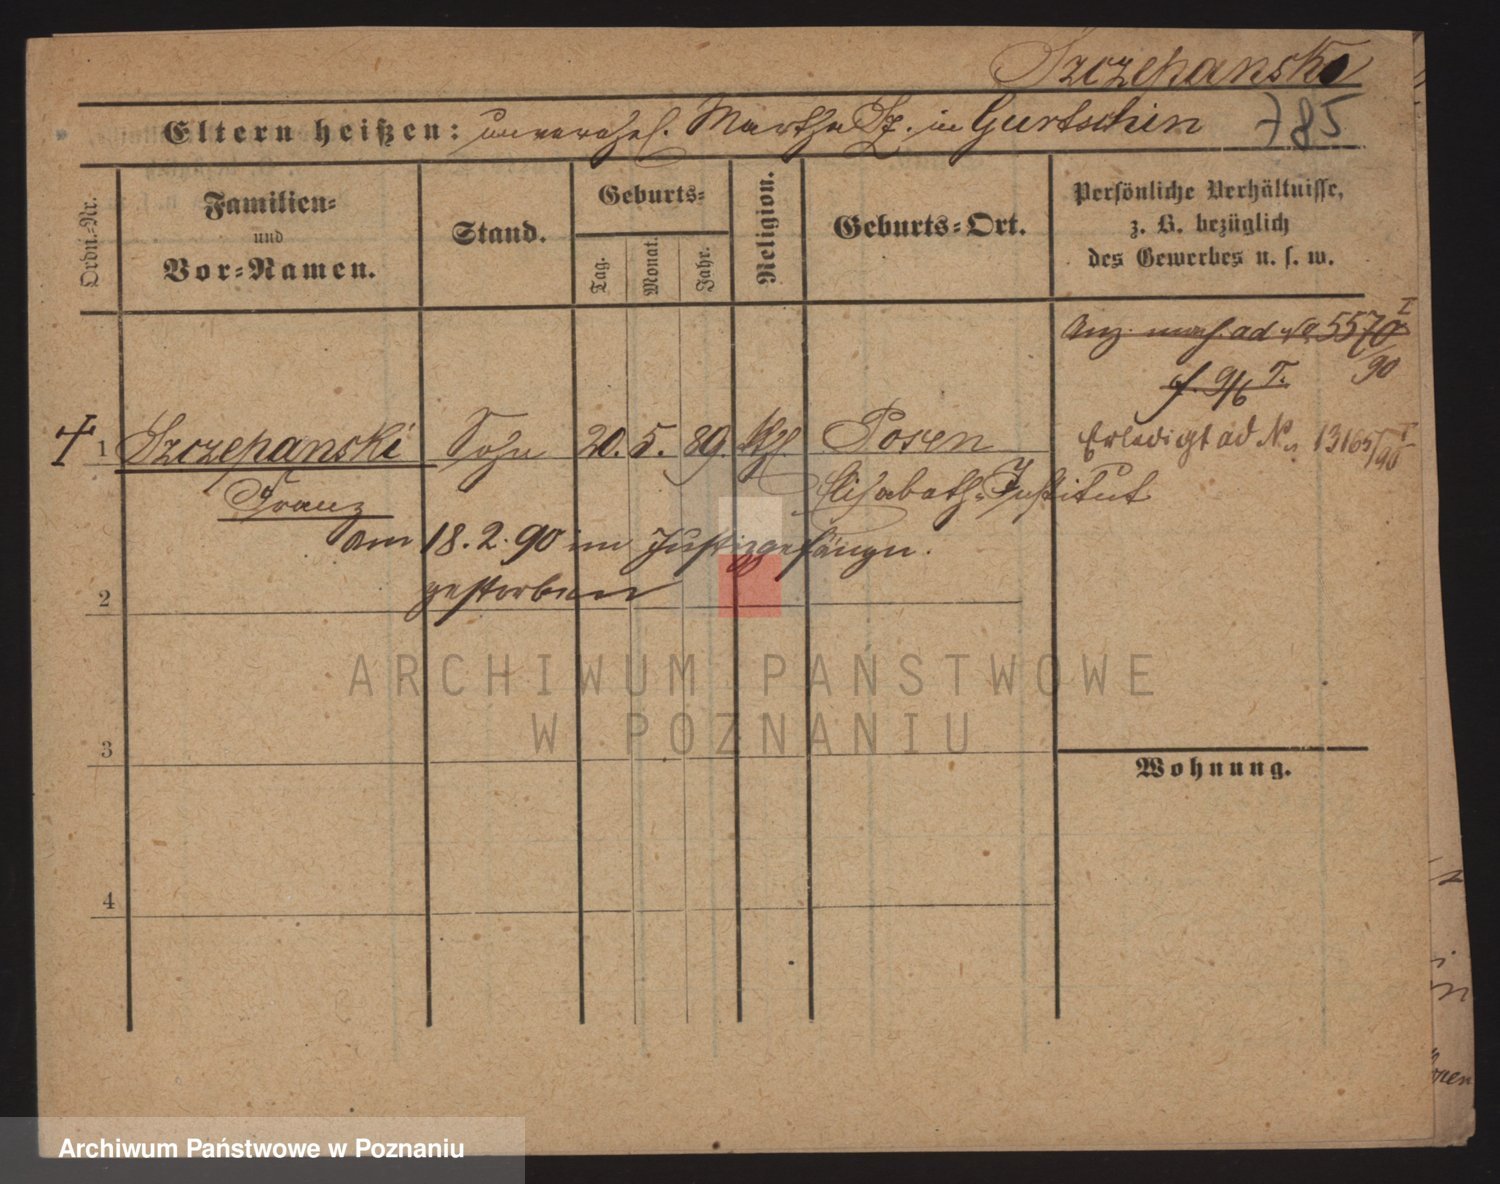 Szczepanski
Eltern heißen: unverehel. Martha Sz. in Gurtschin 785
Ordn.-Nr.
Familien-
und
Vor-Namen.
Stand.
Geburts-
Tag.
Monat.
Jahr.
Religion.
Geburts-Ort.
Persönliche Verhältnisse,
z. B. bezüglich
des Gewerbes u. s. w.
Anz. ad No 5570 I
/90
f. 9/6 T.
1 Szczepanski Sohn 20. 5. 89. kth. Posen Erledigt ad No 13165/90 I
Franz Elisabeth-Institut
am 18. 2. 90 im Justizgefängn.
gestorben
2
3
Wohnung.
4
ARCHIWUM PAŃSTWOWE
W POZNANIU
Archiwum Państwowe w Poznaniu